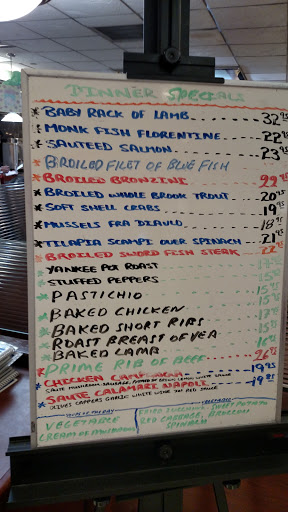 DINNER SPECIALS
BABY RACK OF LAMB 32.95
MONK FISH FLORENTINE 22.95
SAUTEED SALMON 23.95
BROILED FILET OF BLUE FISH
BROILED BRONZINI 22.95
BROILED WHOLE BROOK TROUT 20.95
SOFT SHELL CRABS 19.95
MUSSELS FRA DIAVLO 18.95
TILAPIA SCAMPI OVER SPINACH 21.95
BROILED SWORD FISH STEAK 22.95
YANKEE POT ROAST
STUFFED PEPPERS
PASTICHIO
BAKED CHICKEN
BAKED SHORT RIBS
ROAST BREAST OF VEA
BAKED LAMB
PRIME RIB OF BEEF
CHICKEN 19.95
SAUTE CALAMARI NAPOLI 19.95
OLIVES CAPPERS GARLIC WHITE WINE RED SAUCE
VEGETABLE
CREAM OF MUSHROOM
SWEET POTATO
RED CABBAGE, BROCCOLI
SPINACH